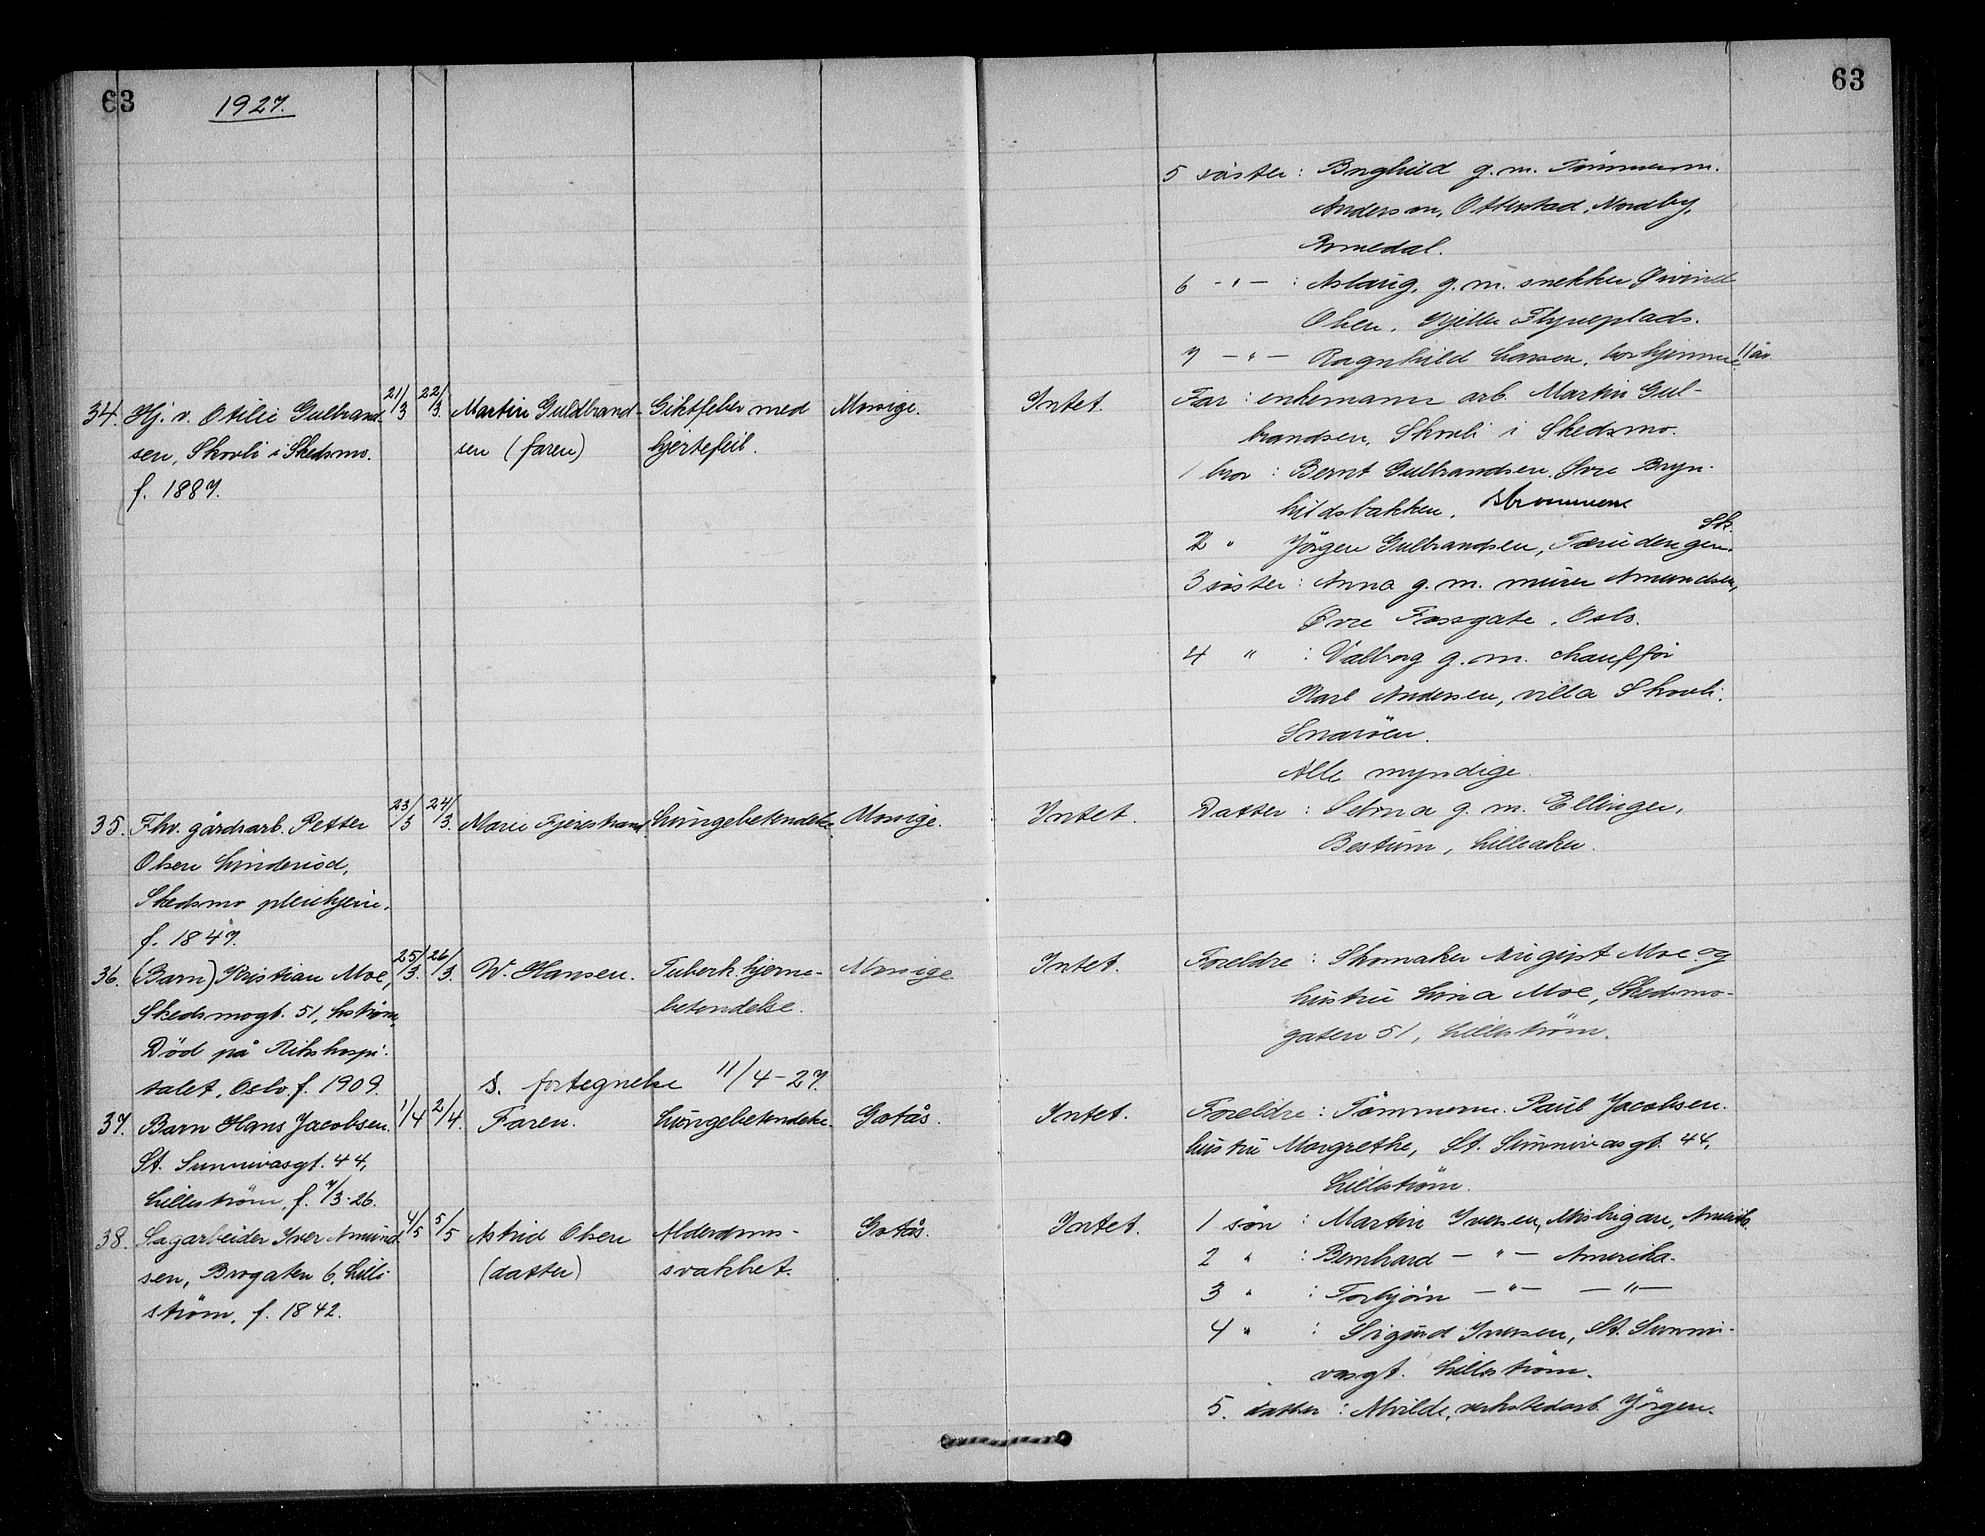 63
1927.
63
5 søster : Borghild g.m. Tømmerm.
Anderson, Otterstad, Nordby,
Romedal.
6 - " - : Aslaug, g.m. snekker Øivind
Olsen, Kjeller Flyveplads.
7 - " - Ragnhild Larsen, bor hjemme 11 år
34. Hj. v. Otilie Gulbrand-
sen, Skovli i Skedsmo.
f. 1887.
21/3 22/3.
Martin Guldbrand-
sen (faren)
Giktfeber med
hjertefeil.
Monsige.
Intet.
Far : enkemann arb. Martin Gul-
brandsen, Skovli i Skedsmo.
1 bror : Bernt Gulbrandsen, Øvre Bryn-
hildsbakken, Strømmen
2 " Jörgen Gulbrandsen, Sk.
3 søster : Anna g.m. murer Amundsen,
Øvre Fossgate, Oslo.
4 " : Valborg g.m. chauffør
Karl Andersen, villa Skovli,
Snarøen.
Alle myndige.
35. Fhv. gårdsarb. Petter
Olsen Linderud,
Skedsmo pleiehjem,
f. 1847.
23/3 24/3.
Marie Fjerestrand
Lungebetendelse
Monsige.
Intet.
Datter : g.m. Ellinger,
Bestum, Lilleaker.
36. (Barn) Kristian Moe,
Skedsmogt. 51, Lstrøm,
Død på Rikshospi-
talet, Oslo. f. 1909.
25/3. 26/3.
W. Hansen.
Tuberk. hjerne-
betendelse.
Monsige
Intet.
Foreldre : Skomaker August Moe og
hustru Lina Moe, Skedsmo-
gaten 51, Lillestrøm.
s. fortegnelse 11/4-27.
37. Barn Hans Jacobsen.
St. Sunnivasgt. 44,
Lillestrøm, f. 7/3-26.
1/4 2/4.
Faren.
Lungebetendelse.
Gotås.
Intet.
Foreldre : Tömmerm. Paul Jacobsen.
hustru Margrethe, St. Sunnivasgt. 44,
Lillestrøm.
38. Sagarbeider Iver Amund-
sen, Brogaten 6, Lille-
strøm, f. 1842.
4/5 5/5
Astrid Olsen
(datter)
Alderdoms-
svakhet.
Gotås.
Intet.
1 søn : Martin Iversen, Mishigan, Amerika
2 " : Bernhard - " - Amerika.
3 " : Torbjørn - " - - " -
4 " : Sigurd Iversen, St. Sunni-
vasgt. Lillestrøm.
5. datter : Alvilde, verkstedarb. Jørgen.